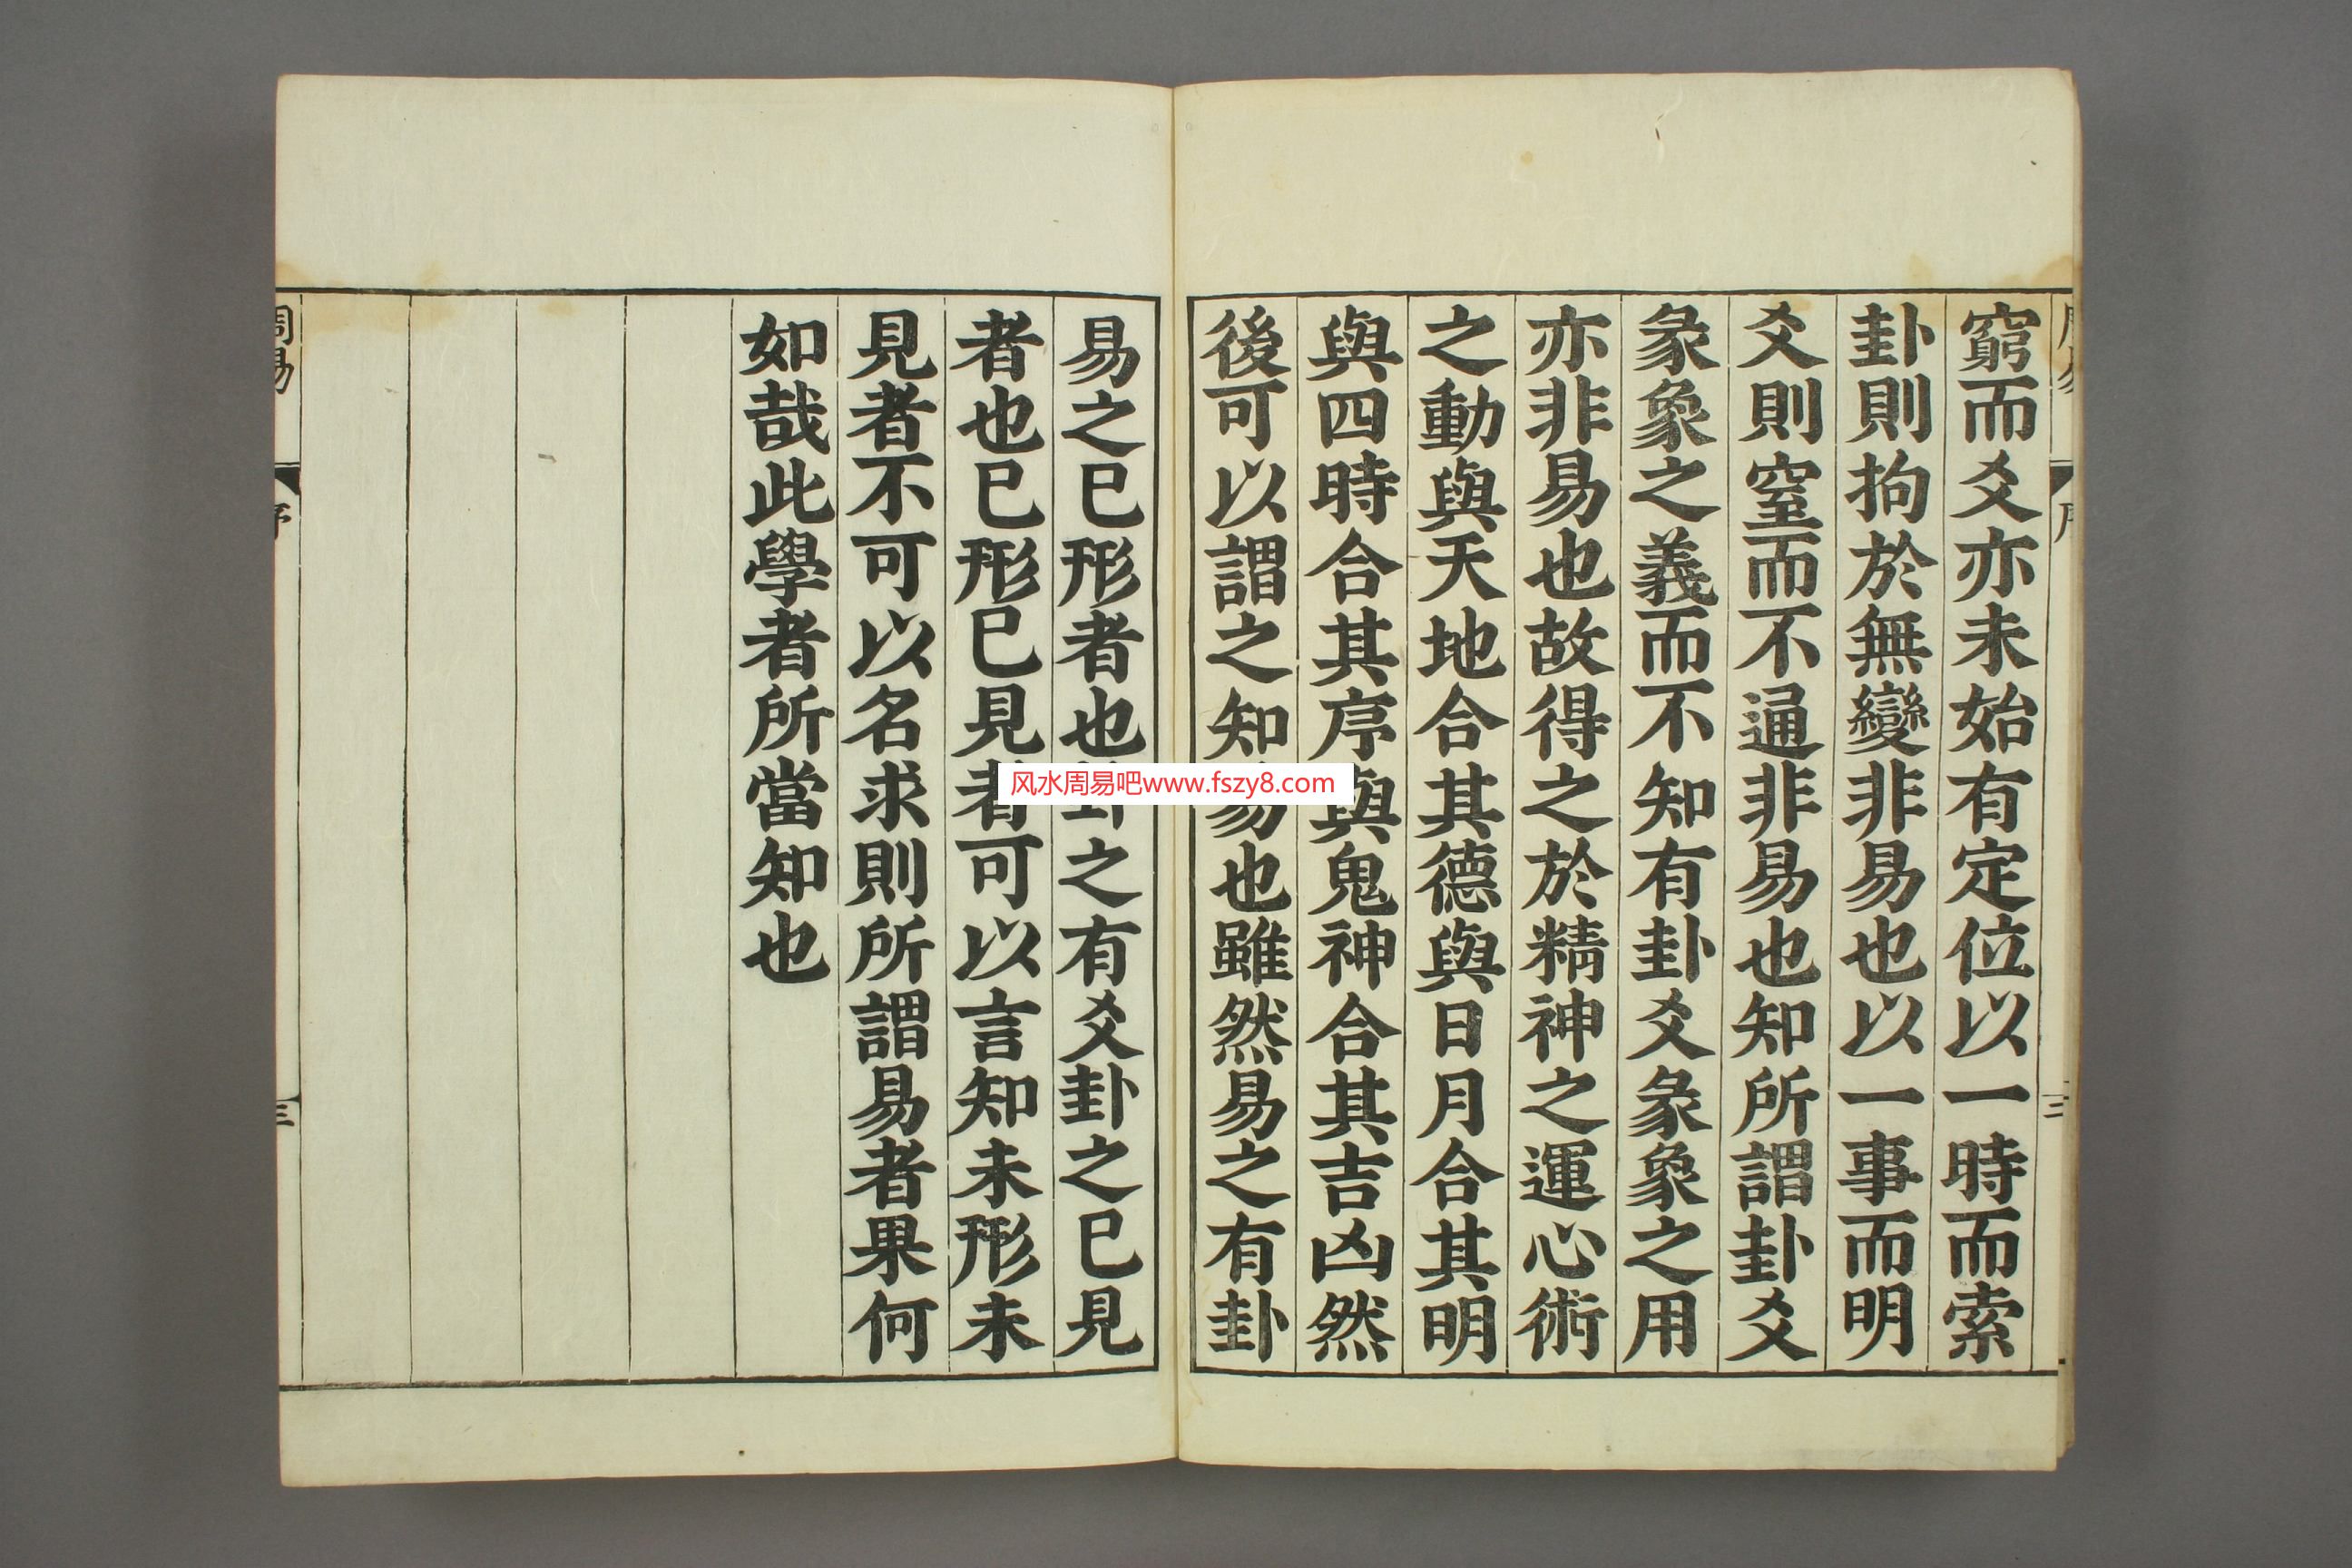 窮而爻亦未始有定位以一時而索
卦則拘於無變非易也以一事而明
爻則窒而不通非易也知所謂卦爻
彖象之義而不知有卦爻彖象之用
亦非易也故得之於精神之運心術
之動與天地合其德與日月合其明
與四時合其序與鬼神合其吉凶然
後可以謂之知易也雖然易之有卦
易之已形者也卦之有爻卦之已見
者也已形已見者可以言知未形未
見者不可以名求則所謂易者果何
如哉此學者所當知也
周易
序
三
风水周易吧www.fszy8.com